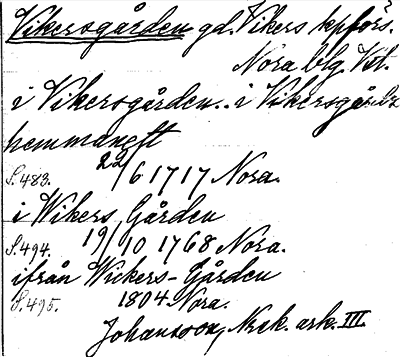 Vikersgården gd. Vikers kpförs.
Nora blg. Vst.
i Vikersgården.. i Vikersgårdz
hemmanett
S. 483. 22/6 1717 Nora.
i Wikers Gården
S. 494. 19/10 1768 Nora.
ifrån Wickers-Gården
S. 495. 1804 Nora.
Johansson, Nrsk. ark. III.